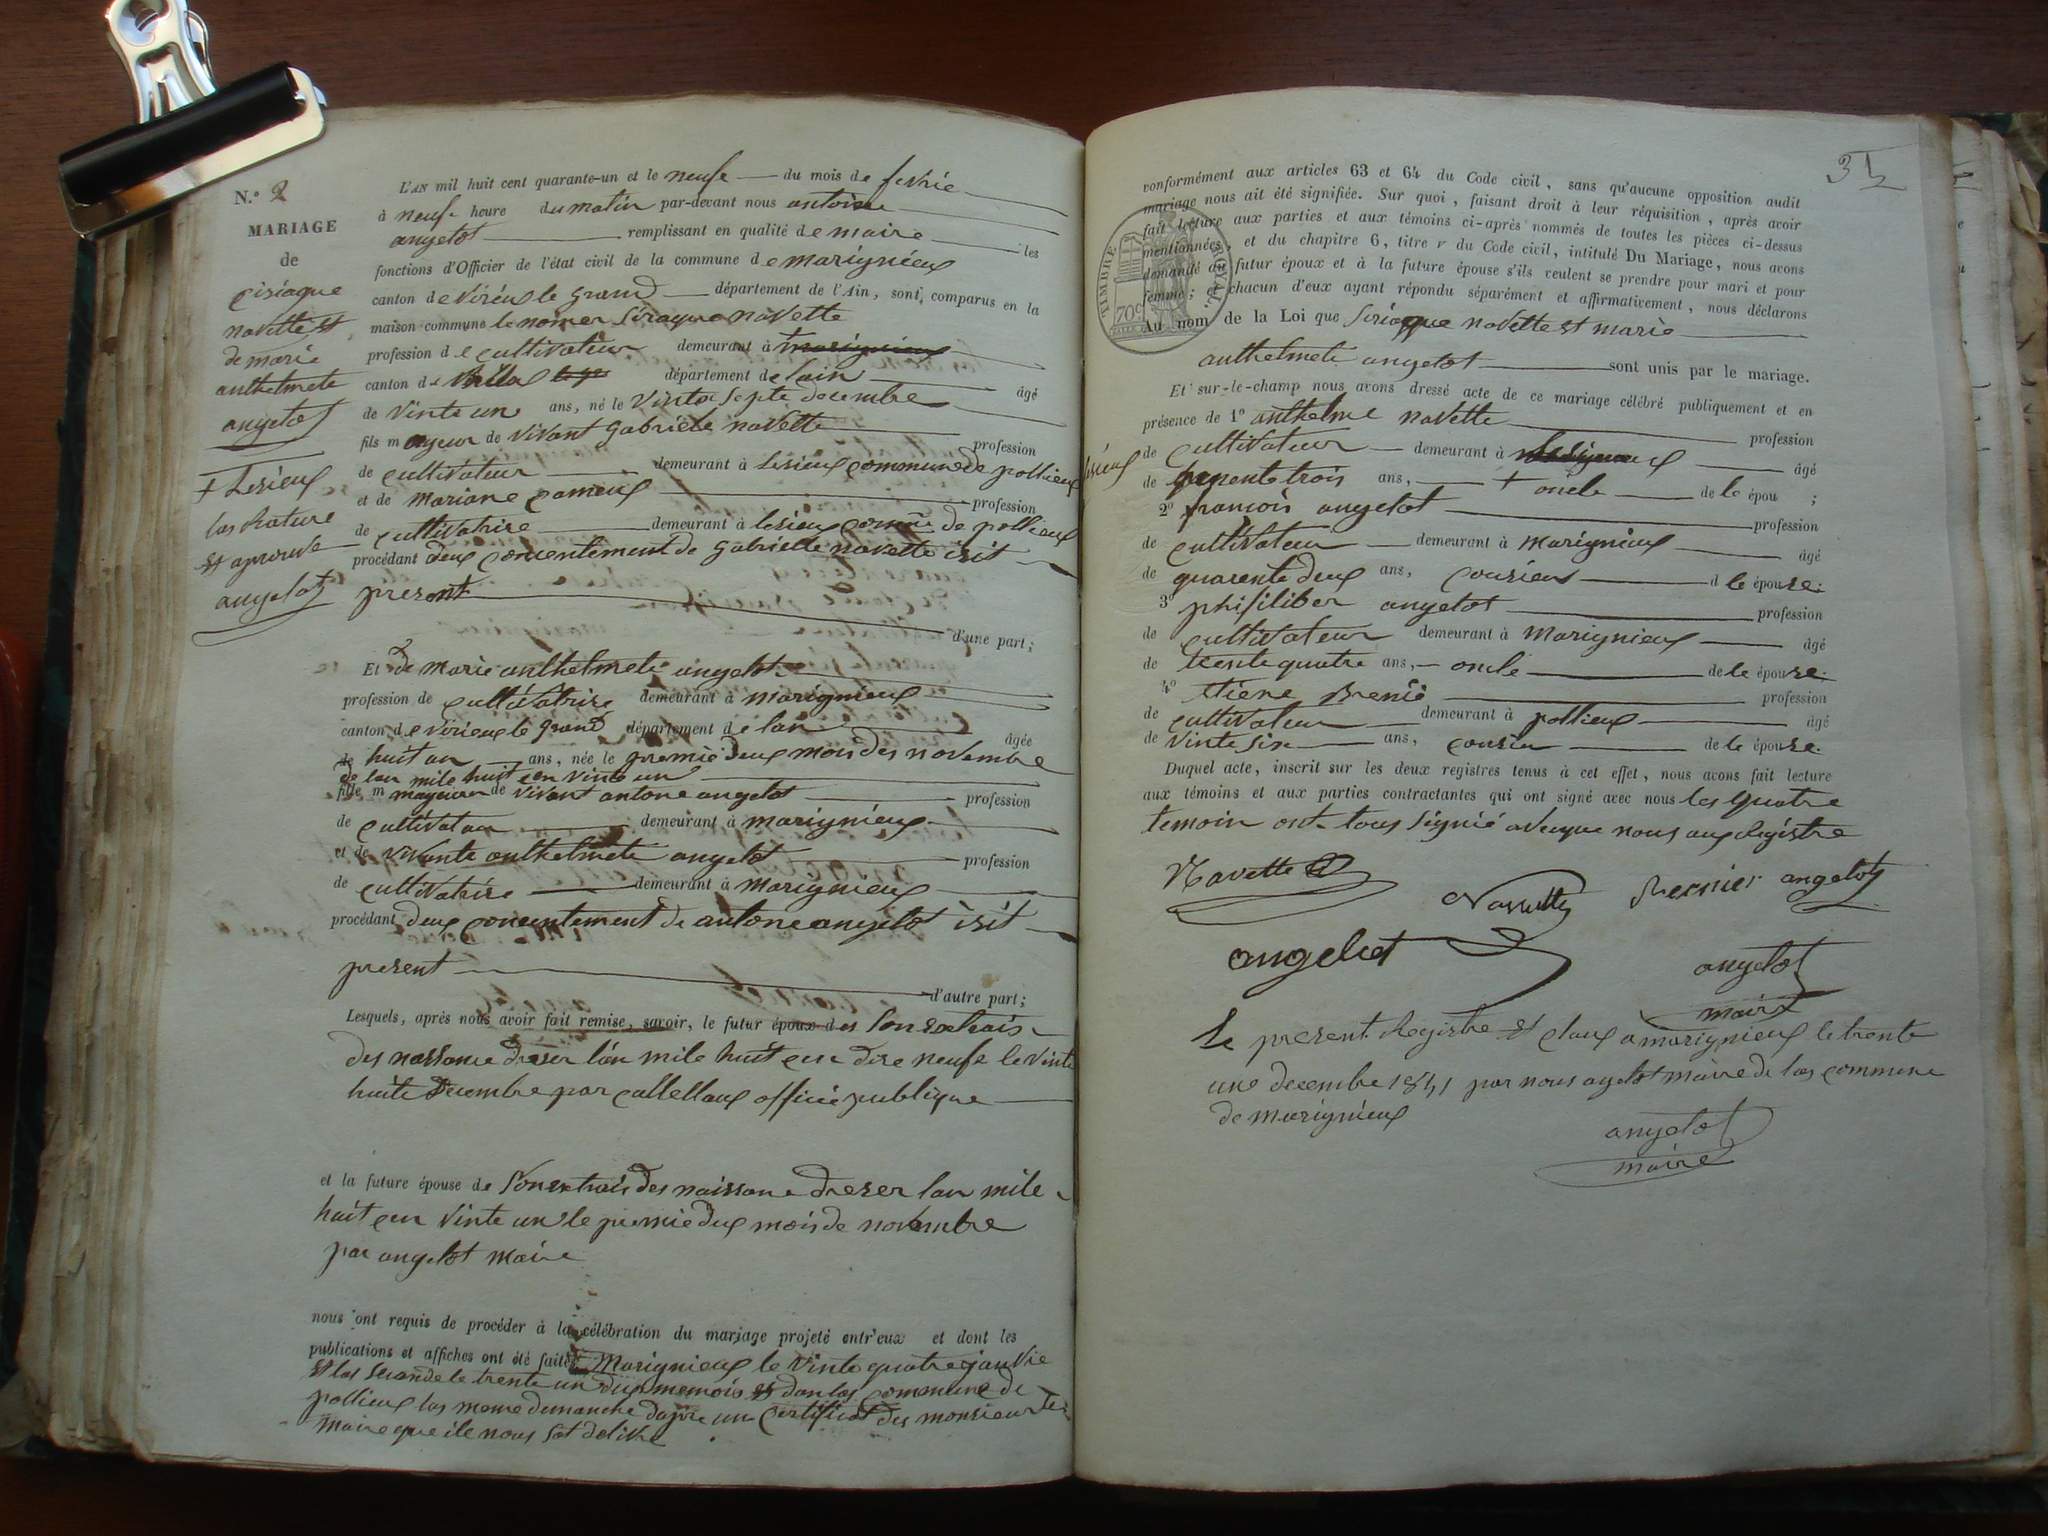 N.o 2
MARIAGE
de
cisiaque
navette et
de marie
anthelmete
angelot
+ Lesieux
las Rature
et aprouve
angelot
L'AN mil huit cent quarante-un et le neufe du mois de fevrié
à neufe heure du matin par-devant nous antoine
angelot remplissant en qualité de maire les
fonctions d'Officier de l'état civil de la commune de marignieux
canton de Virieux le grand département de l'Ain, sont comparus en la
maison commune le nomer Siraque navette
profession de cultivateur demeurant à marignieux
canton de département de lain âgé
de vinte un ans, né le vinte septe decembre
fils mageur de vivant Gabriéle navette profession
de cultivateur demeurant à Lesieux commune de pollieux
et de mariane profession
de cultivatrise demeurant à lesieux de pollieux
procédant deux concentement de gabrielle navette isit
present
d'une part;
Et de marie anthelmete angelot
profession de cultivatrise demeurant à marignieux
canton de virieux le grand département de lan âgée
de huit an ans, née le premié deux mois des novembre
de lan mile huit cen vinte un
fille m mageur de vivant antone angelot profession
de cultivateur demeurant à marignieux
et de vivante anthelmete angelot profession
de cultivatrise demeurant à marignieux
procédant deux concentement de antone angelot isit
present
d'autre part;
Lesquels, après nous avoir fait remise, savoir, le futur époux des son extrais
des naissance dreser l'an mile huit cen dise neufe le vinte
huite decembre par officié publique
et la future épouse de son extrais des naissance dreser lan mile
huit cen vinte un le premié deux mois de novembre
par angelot maire
nous ont requis de procéder à la célébration du mariage projeté entr'eux et dont les
publications et affiches ont été faites Marignieux le vinte quatre janvié
et las seconde le trente un deux memois et dan las commune de
pollieux las meme dimanche dapre un certificat des monsieur le
maire que ile nous delivre
31
conformément aux articles 63 et 64 du Code civil, sans qu'aucune opposition audit
mariage nous ait été signifiée. Sur quoi, faisant droit à leur réquisition, après avoir
fait lecture aux parties et aux témoins ci-après nommés de toutes les pièces ci-dessus
mentionnées, et du chapitre 6, titre v du Code civil, intitulé Du Mariage, nous avons
demandé au futur époux et à la future épouse s'ils veulent se prendre pour mari et pour
femme; et chacun d'eux ayant répondu séparément et affirmativement, nous déclarons
TIMBRE ROYAL.
70c
Au nom de la Loi que Siriaque navette et marie
anthelmete angelot sont unis par le mariage.
Et sur-le-champ nous avons dressé acte de ce mariage célébré publiquement et en
présence de 1o anthelme navette profession
lesieux de cultivateur demeurant à âgé
de trois ans, + oncle de le épou ;
2o françois angelot profession
de cultivateur demeurant à marignieux âgé
de quarente deux ans, cousiens d le épouse.
3o philiber angelot profession
de cultivateur demeurant à Marignieux âgé
de trente quatre ans, oncle de le épouse.
4o etiene Brenié profession
de cultivateur demeurant à pollieux âgé
de vinte six ans, cousin de le épouse.
Duquel acte, inscrit sur les deux registres tenus à cet effet, nous avons fait lecture
aux témoins et aux parties contractantes qui ont signé avec nous les quatre
temoin ont tous signié aveque nous aux Registre
Navette
Navette Bernier angelot
angelot
angelot
maire
Le present Registre et claux a marignieux le trente
une decembre 1841 par nous agelot maire de las commune
de marignieux
angelot
maire